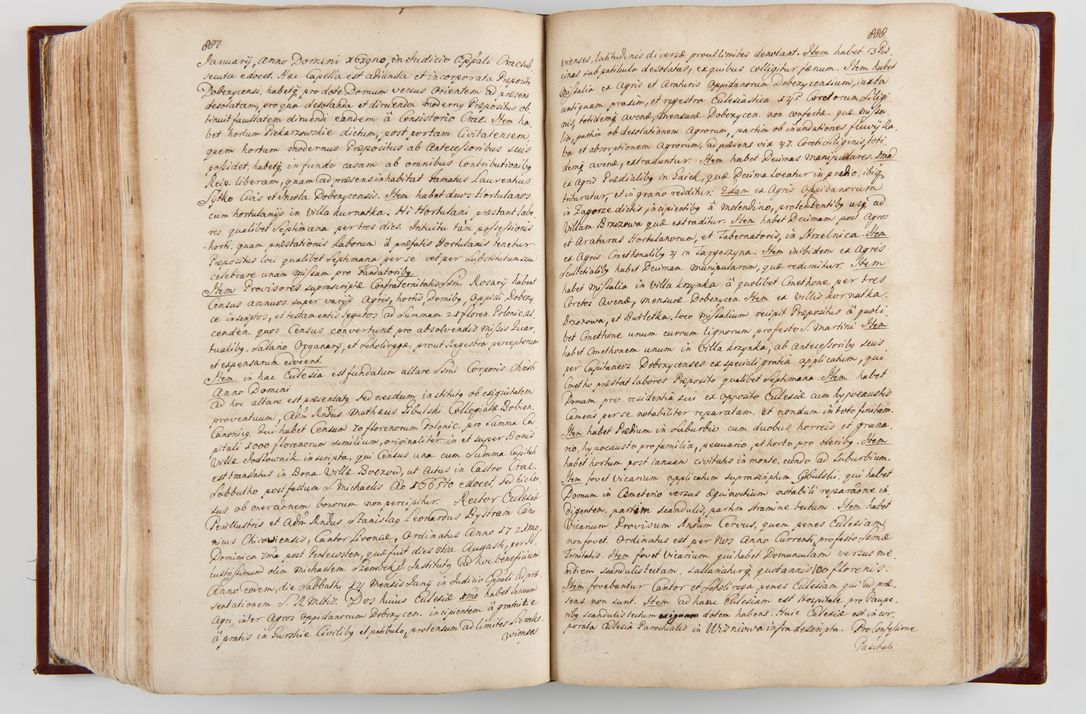 887
Januarij, Anno Domini 1619no, in Judicio Eppali Cracoviae
secuta edocet. Haec Capella est adiuncta et incorporata Praeposito
Dobczycensi, habetq pro dote Domum versus Orientem ad praesens
desolatam, pro qua desolanda et diruenda modernq Praepositus ob
tinuit facultatem diruendi eandem à Consistorio Crac. Item ha
bet hortum Piekarzowskie dictum, post portam Civitatensem
quem hortum modernus Praepositus ab Antecessoribus suis
possidet, habetq in fundo casam ab omnibus Contributionibq
Reip. liberam, quam ad praesens inhabitat famatus Laurentius
Sytko Civis et Incola Dobczycensis. Item habet duos Hortulanos
cum hortulanijs in Villa kurnatka. Hi Hortulani, praestant labo
res qualibet Septimana per tres dies. Intuitu tam possessionis
horti, quam praestationis Laborum à praefatis Hortulanis tenetur
Praepositus loci qualibet Septimana per se vel per substitutum suu
celebrare unam missam pro Fundatoribq.
Item Provisores suprascriptae Confraternitatis SSmi Rosarij habent
Census annuos super varijs Agris, hortis Domibq, Oppidi Dobczy
ce inscriptos, et testamentis legatos ad Summam 28 floren. Polonic. as
cenden. quos Census convertunt pro absolvendis missis Quar
tualibq. Salario Organarij, et scholiregae, prout Regestra perceptorum
et expensarum edocent.
Item in hac Ecclesia est fundatum altare SSmi Corporis Christi
Anno Domini
Ad hoc altare est praesentatq sed necdum institutq ob exiguitatem
proventuum, Admodum Rndus Mathaeus Cibulski Collegiatae Bochen.
Canonicq. Qui habet Censum 70 florenorum Polonic. pro Summa Ca
pitali 1000 florenorum similium, originaliter in et super Bonis
Villae Sosłownik inscripta, qui Census una cum Summa Capitali
est translatus in Bona Villae Boczow, ut Actus in Castro Crac.
Sabbatho post festum S. Michaelis Ao 1665to edocet. Sed hic Cen
sus ob onerationem bonorum non percipitur. Rector Ecclesiae
Perillustris et Adm Rndus Stanislaq Leonardus Bystram Cano
nicus Chioviensis, Cantor Livoniae, Ordinatus Anno 1728mo,
Dominica 2ma post Pentecosten, quae fuit dies 8va Augusti, per Il
lustrissimum olim Michaelem Szembek, Institutq ad hoc beneficium
Anno eodem, die Sabbathi 12 Mensis Junij in Judicio Eppali ad prae
sentationem S. R. Mttis. Dos huius Ecclesiae 1mo habet laneum
Agri, inter Agros Oppidanorum Dobczycen. incipientem à granitie
à pratis in Gurskie Civilibq et patibulo, protensum ad limites Sierako
wienses
888
vienses, latitudinis diversae prout limites denotant. Item habet 3 Pis
cinas sub patibulo desolatas, ex quibus colligitur faenum. Item habet
Missalia ex Agris et Araturis Oppidanorum Dobczycensium, iuxta
antiquam praxim, et regestra Ecclesiastica 54or Coretorum Siligi
nis, totidemq avenae, mensurae Dobczycen. non confertae, quae missa
lia, partim ob desolationem Agrorum, partim ob inundationes fluvij Ra
ba et absorptionem Agrorum, ad praesens vix 47 Coreti Siliginis, toti
demq avenae, extraduntur. Item habet Decimas manipulares. 1mo
ex Agris Praedialibq in Laięk, quae Decima locatur in praedio, ibiq
trituratur, et in grano redditur. 2dam ex Agris Oppidanorum
in Zagorze dictis, incipientibq à Molendino, protendentibq usq ad
Villam Brzezowa quae extraditur. Item habet Decimam post Agros
et Araturas Hortulanorum, et Tabernatoris, in Strzelnica. Item
ex Agris Cmethonalibq 7 in Targoszyna. Item inibidem ex Agris
Scultetialibq habet Decimam manipularem, quae redimitur. Item
habet missalia in villa krzynka à quolibet Cmethone, per tres
Coretos Avenae, mensurae Dobczycen. Item ex villis kornatka.
Brzezowa, et Burletka, loco missalium recipit Praepositus à quoli
bet Cmethone unum currum lignorum pro festo S. Martini. Item
habet Cmethonem unum in Villa krzynka, ab Antecessoribq suis
per Capitaneos Dobczycenses ex speciali gratia applicatum, qui
Cmetho praestat labores Praeposito qualibet Septimana. Item habet
Domum pro residentia sui ex opposito Ecclesiae cum hypocaustis
Cameris per se notabiliter reparatam, et nondum in toto finitam.
Item habet Praedium in suburbio cum duobus horreis et grana
rio, hypocausto pro familia, pecuario, et horto pro oleribq. Item
habet hortum post ianuam civitatis in monte, eundo ad suburbium.
Item fovet Vicarium applicatum suprascriptum Cybulski, qui habet
Domum in Caemeterio versus Aequinoctium notabili reparatione in
digentem, partim scandulis, partim stramine tectum. Item habet
Vicarium Provisum Ansum Cervus, quem penes Ecclesiam
non fovet. Ordinatus est per Nos Anno Currenti, pro festo SSmae
Trinitatis. Item fovet Vicarium qui habet Domunculam versus me
ridiem scandulis tectam, Salariaturq quotannis 100 florenis.
Item fovebantur Cantor et Scholirega penes Ecclesiam qui ad prae
sens non sunt. Item ad hanc Ecclesiam est Hospitale pro Paupe
ribq scandulis tectum exiguam dotem habens. Huic Ecclesiae est incor
porata Ecclesia Parochialis in Wisniowa infra descripta. Pro Confessione
Paschali